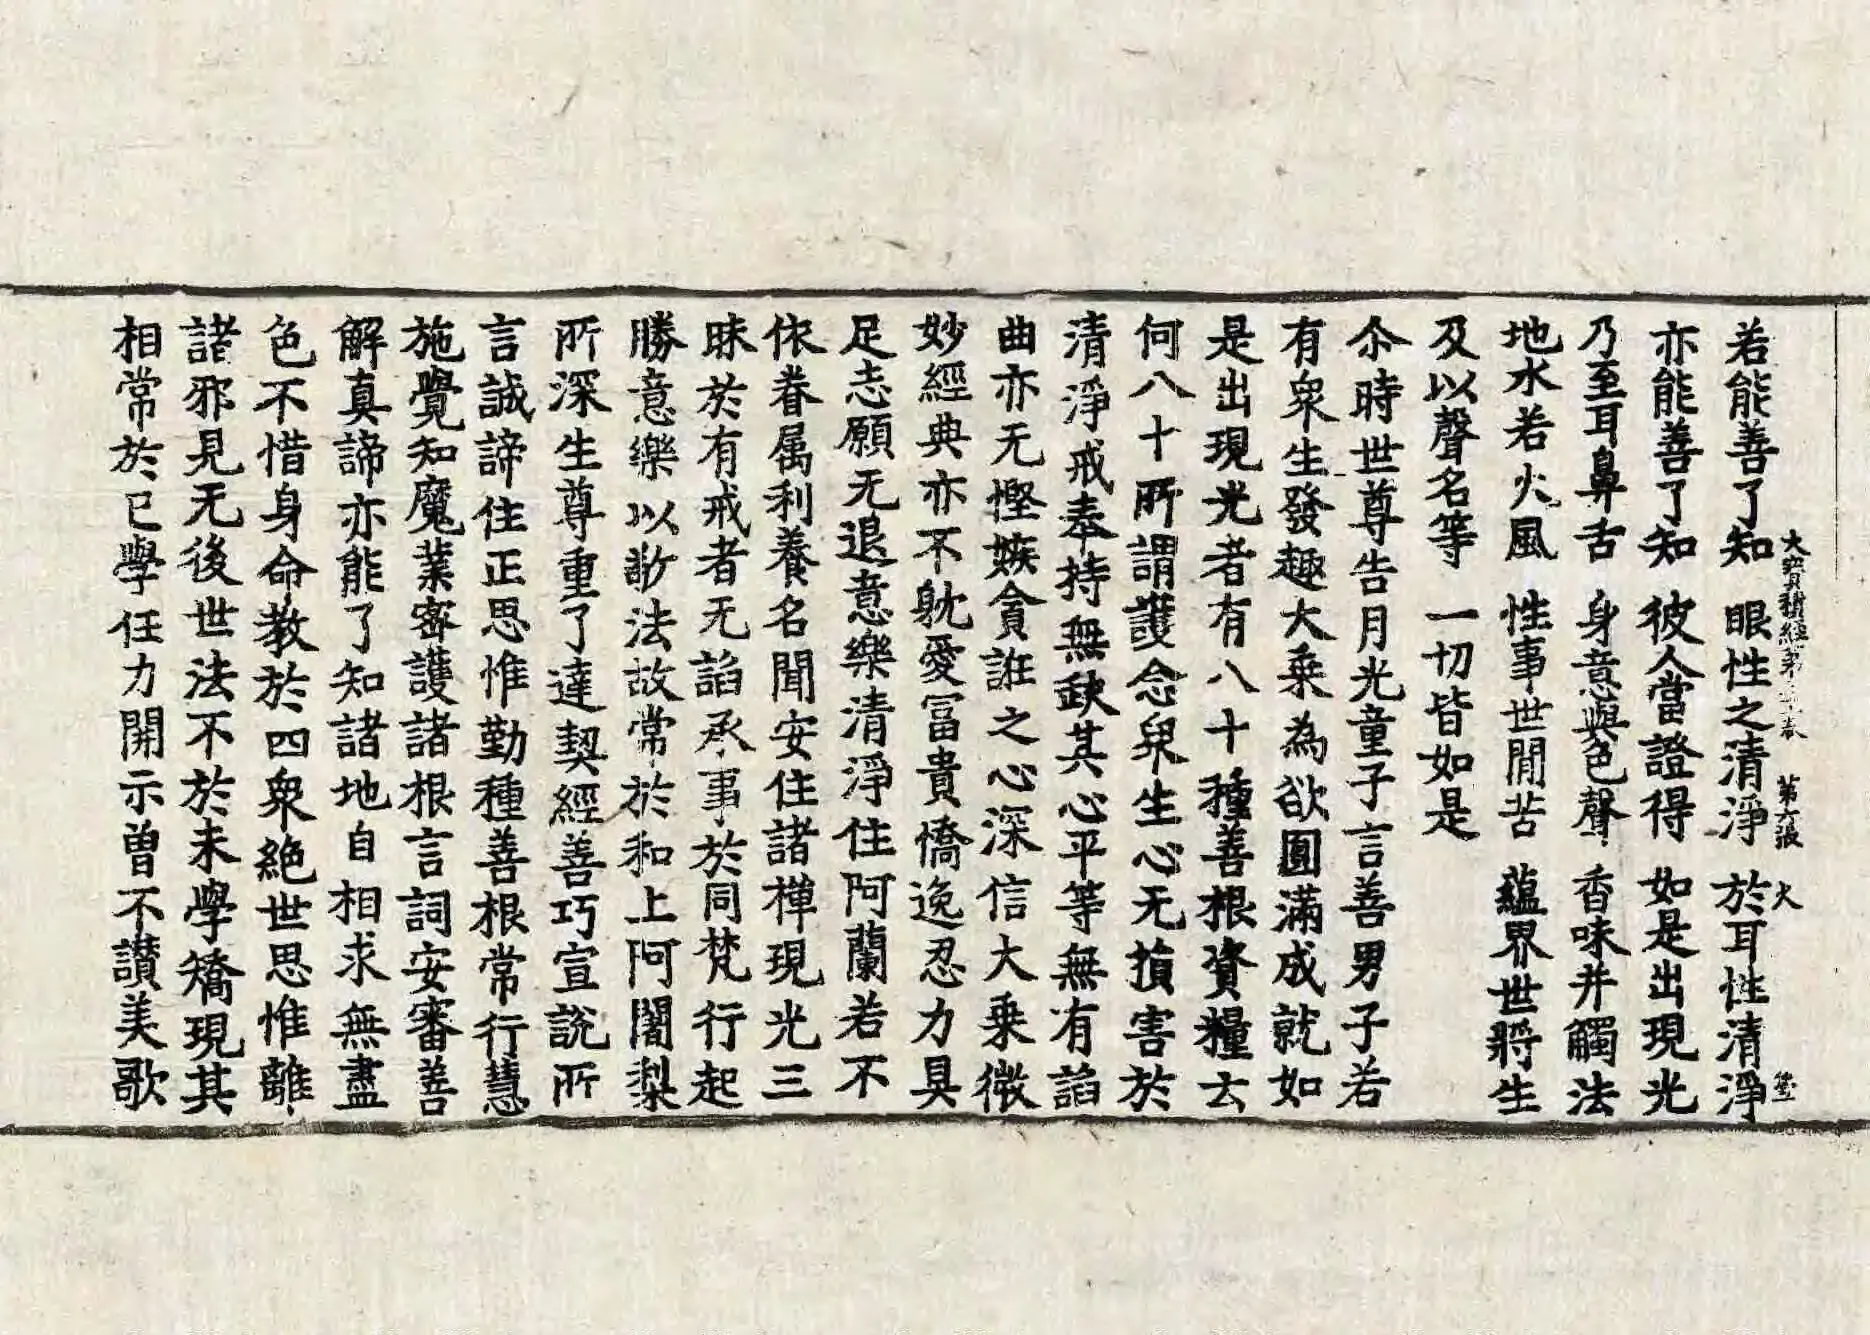 大寶積經第三十卷 第六張 火
若能善了知 眼性之清淨 於耳性清淨
亦能善了知 彼人當證得 如是出現光
乃至耳鼻舌 身意與色聲 香味并觸法
地水若火風 性事世間苦 蘊界世將生
及以聲名等 一切皆如是
尒時世尊告月光童子言善男子若
有衆生發趣大乗為欲圓滿成就如
是出現光者有八十種善根資糧云
何八十所謂護念衆生心无損害於
清淨戒奉持無缺其心平等無有諂
曲亦无慳嫉貪誑之心深信大乗微
妙經典亦不躭愛冨貴憍逸忍力具
足志願无退意樂清淨住阿蘭若不
依眷属利養名聞安住諸禪現光三
昧於有戒者无諂承事於同梵行起
勝意樂以敬法故常於和上阿闍梨
所深生尊重了達契經善巧宣說所
言誠諦住正思惟勤種善根常行慧
施覺知魔業密護諸根言詞安審善
解真諦亦能了知諸地自相求無盡
色不惜身命教於四衆絶世思惟離
諸邪見无後世法不於未學矯現其
相常於已學任力開示曾不讃美歌